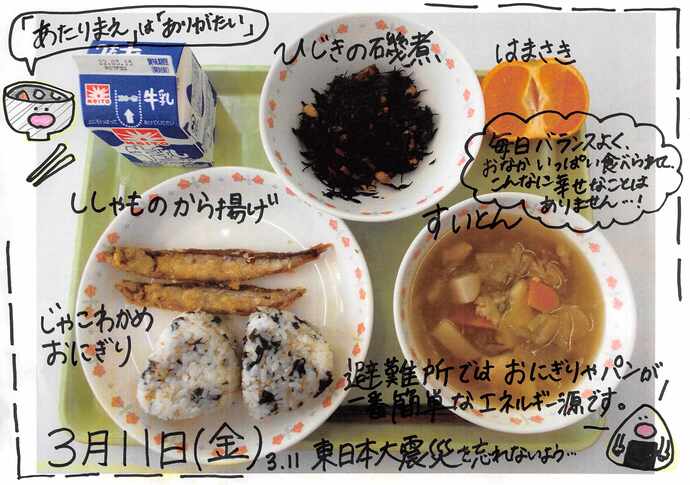 「あたりまえ」は「ありがたい」
ひじきの磯煮
はまさき
牛乳
MEITO
毎日バランスよく、
おなかいっぱい食べられて、
こんなに幸せなことは
ありません…!
ししゃものから揚げ
すいとん
じゃこわかめ
おにぎり
避難所では おにぎりやパンが
一番簡単なエネルギー源です。
3月11日(金)
3.11 東日本大震災を忘れないよう…